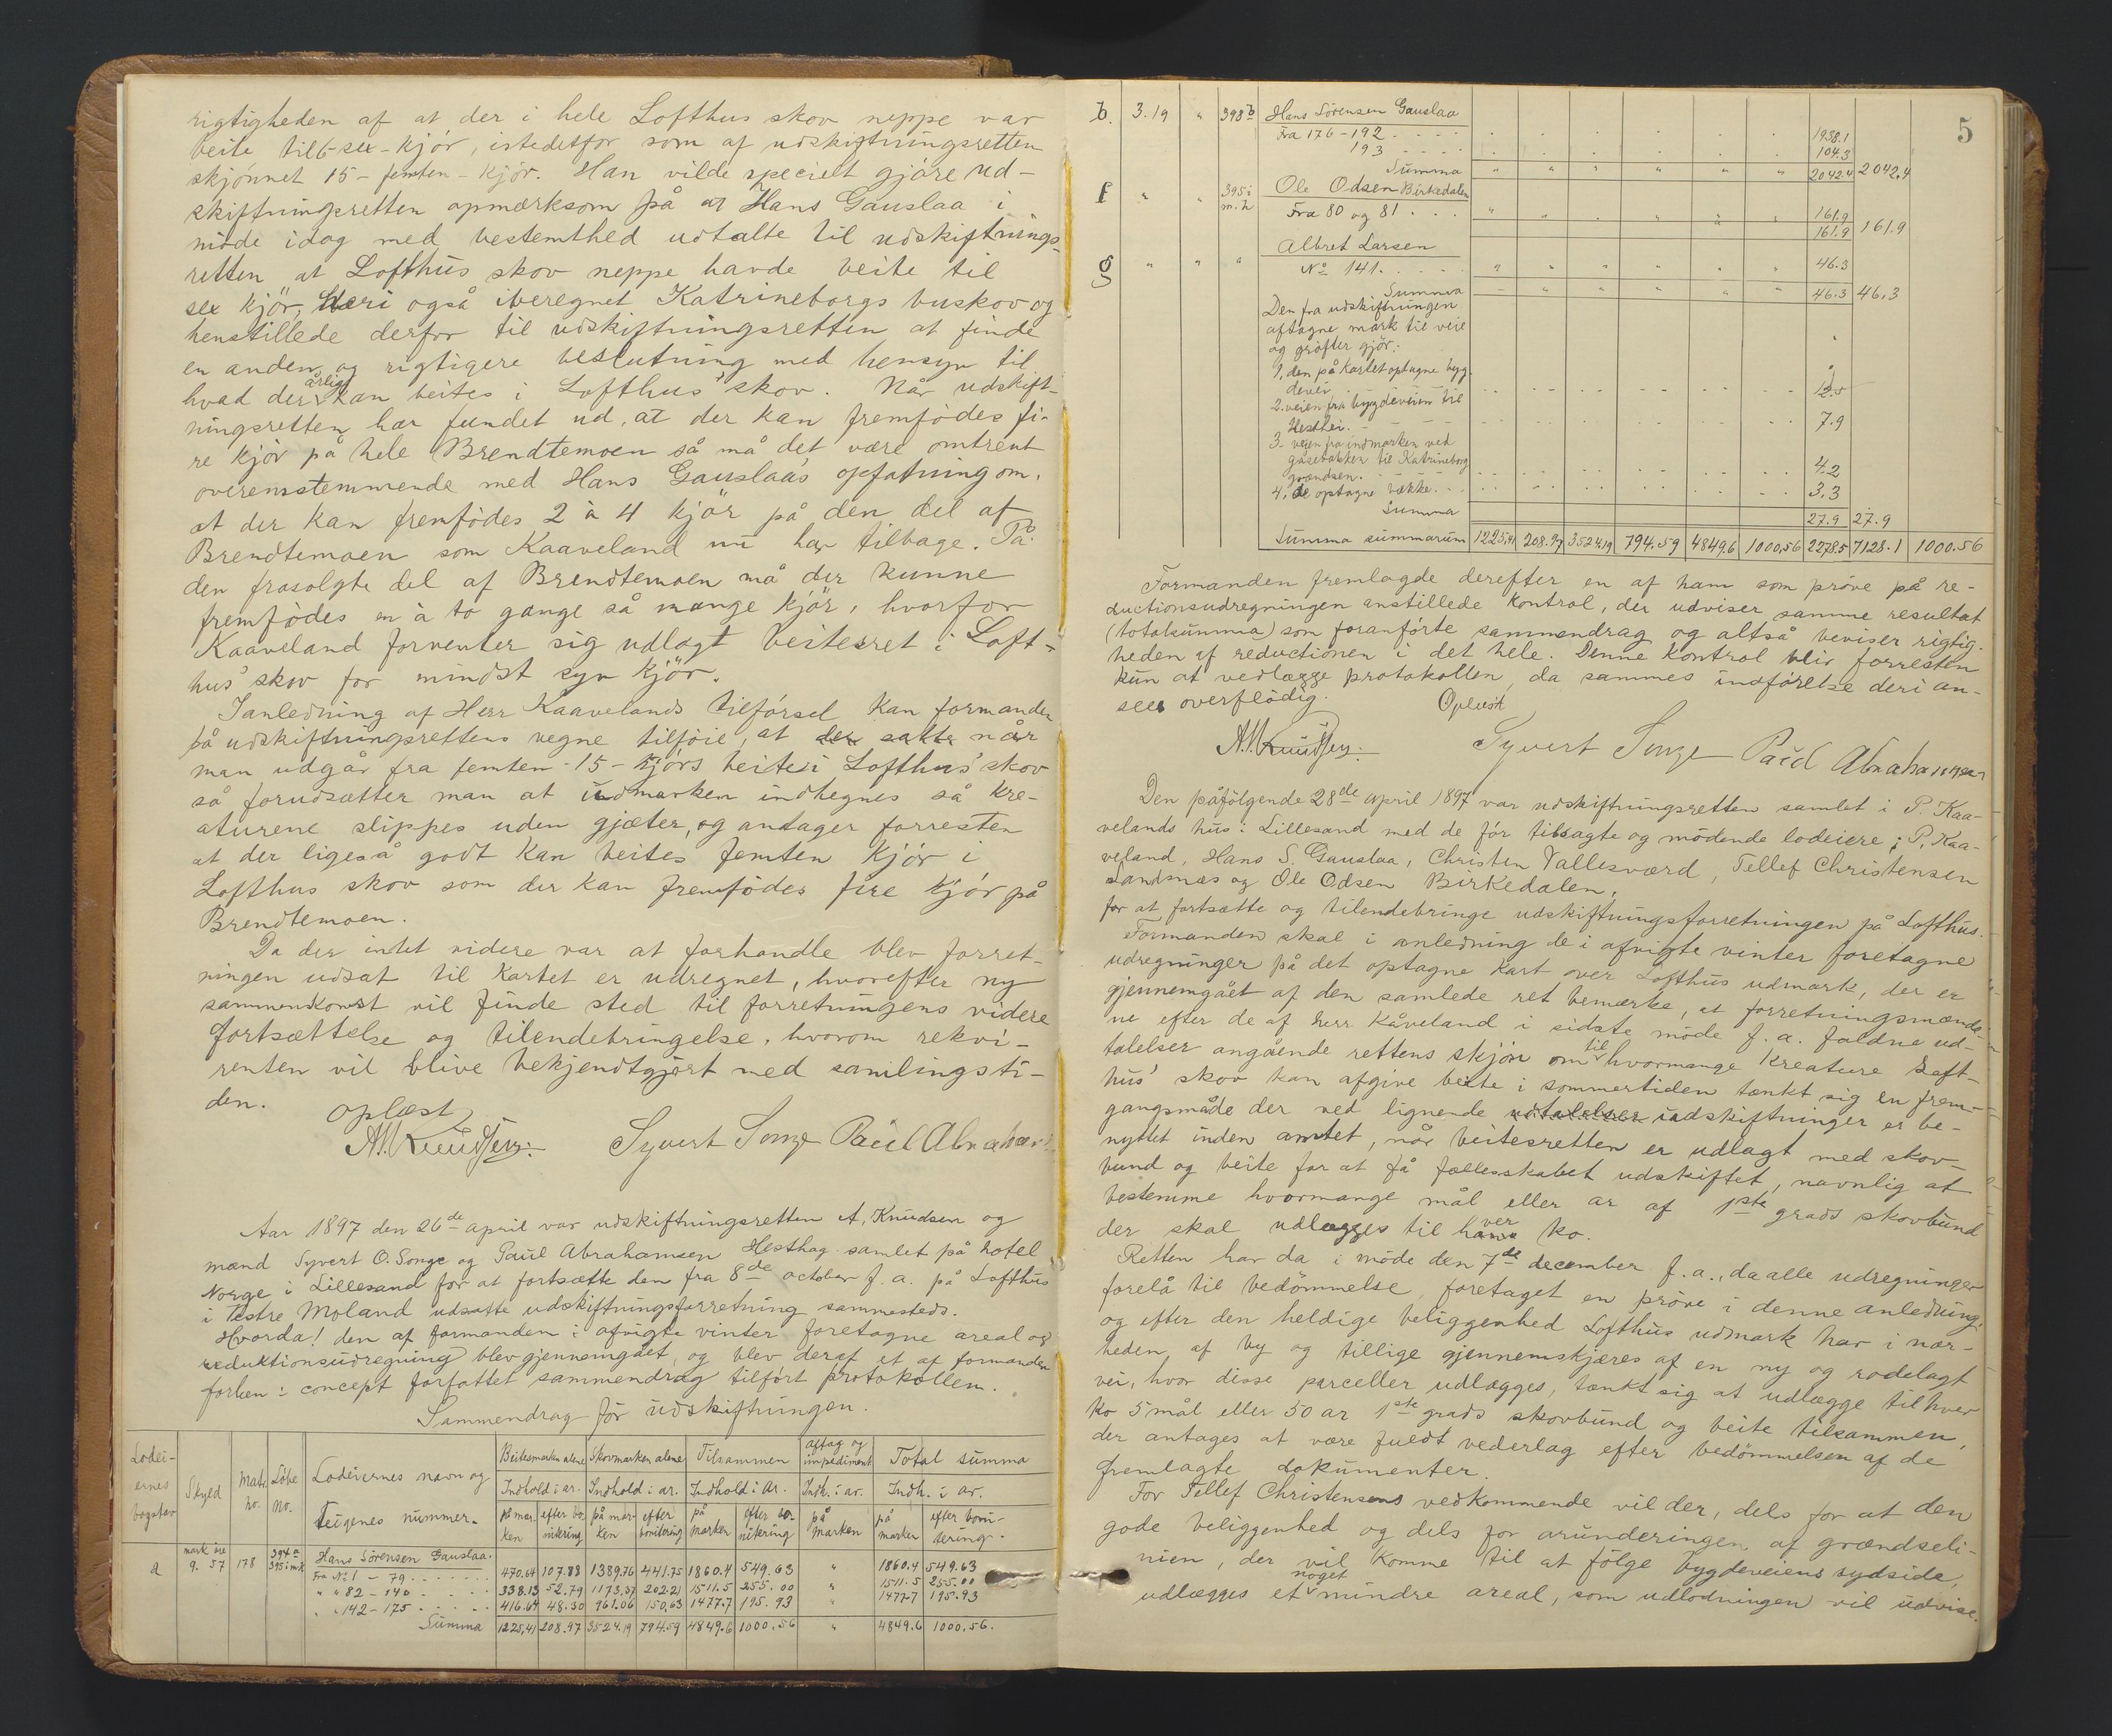 rigtigheden af at der i hele Lofthus skov neppe var
beite til 6 - sex - kjör, istedetfor som af udskiftningsretten
skjönnet 15 - femten - kjör. Han vilde specielt gjöre ud-
skiftningsretten opmærksom på at Hans Gauslaa i
möde idag med bestemthed udtalte til udskiftnings-
retten at Lofthus skov neppe havde beite til
sex kjör, heri også iberegnet Katrineborgs buskov og
henstillede derfor til udskiftningsretten at finde
en anden og rigtigere beslutning med hensyn til
hvad der årligt kan beites i Lofthus' skov. Når udskift-
ningsretten har fundet ud, at der kan fremfödes fi-
re kjör på hele Brendtemoen så må det være omtrent
overensstemmende med Hans Gauslaa's opfatning om,
at der kan fremfödes 2 à 4 kjör på den del af
Brendtemoen som Kaaveland nu har tilbage. På
den frasolgte del af Brendtemoen må der kunne
fremfödes en à to gange så mange kjör, hvorfor
Kaaveland forventer sig udlagt beitesret i Loft-
hus' skov for mindst syv kjör.
Ianledning af Herr Kaavelands tilförsel kan formanden
på udskiftningsrettens vegne tilföie, at der satte når
man udgår fra femten - 15 - kjörs beite i Lofthus' skov
så forudsætter man at indmarken indhegnes så kre-
aturene slippes uden gjæter, og antager forresten
at der ligeså godt kan beites femten kjör i
Lofthus skov som der kan fremfödes fire kjör på
Brendtemoen.
Da der intet videre var at forhandle blev forret-
ningen udsat til kartet er udregnet, hvorefter ny
sammenkomst vil finde sted til forretningens videre
fortsættelse og tilendebringelse, hvorom rekvi-
renten vil blive bekjendtgjört med samlingsti-
den.
oplæst
A. Knudsen. Syvert Songe Paul Abraham
Aar 1897 den 26de april var udskiftningsretten A. Knudsen og
mænd Syvert O. Songe og Paul Abrahamsen Hesthag samlet på hotel
Norge i Lillesand for at fortsætte den fra 8de october f. a. på Lofthus
i Vestre Moland udsatte udskiftningsforretning sammesteds.
Hvorda! den af formanden i afvigte vinter foretagne areal og
reduktionsudregning blev gjennemgået, og blev deraf et af formanden
forhen i concept forfattet sammendrag tilfört protokollen.
Sammendrag för udskiftningen.
Lodei-ernes bogstav | Skyld | Matr. no. | Löbe no. | Lodeiernes navn og Teigenes nummer. | Beitesmarken alene | Skovmarken alene | Tilsammen | aftag og impediment | Total summa
Indhold i ar. | Indhold i ar. | Indhold i ar. | Indh. i ar. | Indh. i ar.
på marken | efter bonitering | på marken | efter bonitering | på marken | efter bonitering | på marken | på marken | efter bonitering.
a | mark öre 9. 57 | 178 | 394a 395 i m k | Hans Sörensen Gauslaa.
Fra No 1 - 79 | 470.64 | 107.88 | 1389.76 | 441.75 | 1860.4 | 549.63 | " | 1860.4 | 549.63
" " 82 - 140 | 338.13 | 52.79 | 1173.37 | 202.21 | 1511.5 | 255.00 | " | 1511.5 | 255.00
" " 142 - 175 | 416.64 | 48.30 | 961.06 | 150.63 | 1477.7 | 195.93 | " | 1477.7 | 195.93
Summa | 1225.41 | 208.97 | 3524.19 | 794.59 | 4849.6 | 1000.56 | " | 4849.6 | 1000.56.
5
b. | 3.19 | " | 398b | Hans Sörensen Gauslaa
Fra 176 - 192 | 1938.1
193 | 104.3
Summa | 2042.4 | 2042.4
f | " | " | 395 i m. h | Ole Odsen Birkedalen
Fra 80 og 81 | 161.9
161.9 | 161.9
g | " | " | " | Albret Larsen
No 141. | 46.3
Summa | 46.3 | 46.3
Den fra udskiftningen
aftagne mark til veie
og gröfter gjör:
1, den på kartet optagne byg-
devei | 12.5
2. veien fra bygdeveien til
Hesthei. | 7.9
3 - veien fra indmarken ved
gåsebakken til Katrineborg
grændsen. | 4.2
4, de optagne bække | 3.3
Summa | 27.9 | 27.9
Summa summarum | 1225.41 | 208.97 | 3524.19 | 794.59 | 4849.6 | 1000.56 | 2278.5 | 7128.1 | 1000.56
Formanden fremlagde derefter en af ham som pröve på re-
ductionsudregningen anstillede kontrol, der udviser samme resultat
(totalsumma) som foranförte sammendrag og altså beviser rigtig-
heden af reductionen i det hele. Denne kontrol blir forresten
kun at vedlægge protokollen, da sammes indförelse deri an-
sees overflödig.
Oplæst
A. Knudsen. Syvert Songe Paul Abrahamsen
Den påfölgende 28de april 1897 var udskiftningsretten samlet i P. Kaa-
velands hus i Lillesand med de för tilsagte og mödende lodeiere; P. Kaa-
veland, Hans S. Gauslaa, Christen Vallesværd, Tellef Christensen
Sandsnæs og Ole Odsen Birkedalen,
for at fortsætte og tilendebringe udskiftningsforretningen på Lofthus.
Formanden skal i anledning de i afvigte vinter foretagne
udregninger på det optagne kart over Lofthus udmark, der er
gjennemgået af den samlede ret bemærke, at forretningsmænde-
ne efter de af herr Kåveland i sidste möde f. a. faldne ud-
talelser angående rettens skjön om til hvormange kreature Loft-
hus' skov kan afgive beite i sommertiden tænkt sig en frem-
gangsmåde der ved lignende udtalelser udskiftninger er be-
nyttet inden amtet, når beitesretten er udlagt med skov-
bund og beite for at få fællesskabet udskiftet, navnlig at
bestemme hvormange mål eller ar af 1ste grads skovbund
der skal udlægges til hver ko.
Retten har da i möde den 7de december f. a., da alle udregninger
forelå til bedömmelse, foretaget en pröve i denne anledning,
og efter den heldige beliggenhed Lofthus udmark har i nær-
heden af by og tillige gjennemskjæres af en ny og rodelagt
vei, hvor disse parceller udlægges, tænkt sig at udlægge til hver
ko 5 mål eller 50 ar 1ste grads skovbund og beite tilsammen,
der antages at være fuldt vederlag efter bedömmelsen af de
fremlagte dokumenter.
For Tellef Christensens vedkommende vil der, dels for at den
gode beliggenhed og dels for arunderingen af grændseli-
nien, der vil komme til at fölge bygdeveiens sydside,
udlægges et noget mindre areal, som udlodningen vil udvise.